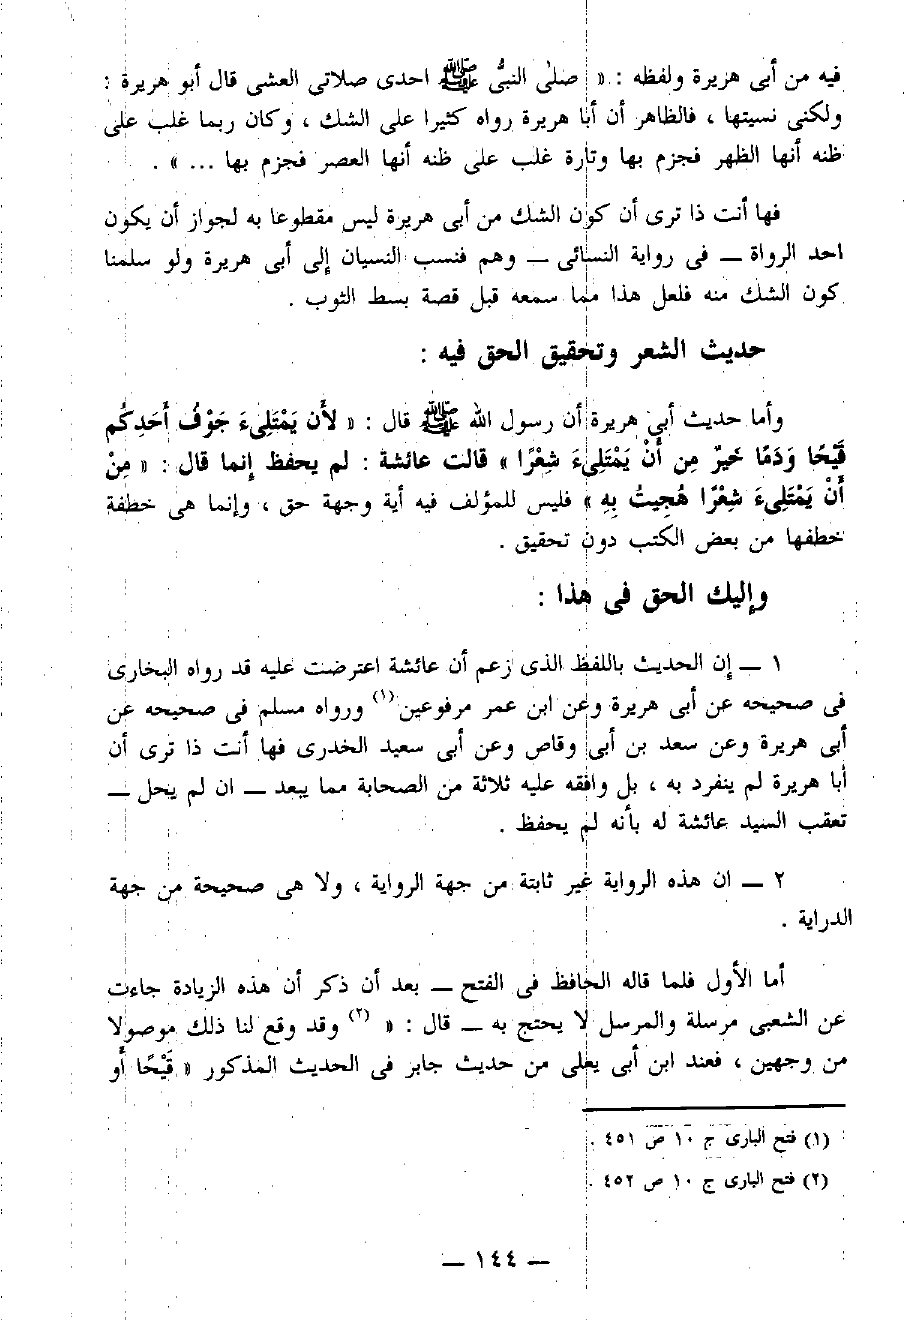 فيه من أبى هريرة ولفظه : « صلى النبىُّ ﷺ احدى صلاتى العشى قال أبو هريرة :
ولكنى نسيتها ، فالظاهر أن أبا هريرة رواه كثيرا على الشك ، وكان ربما غلب على
ظنه أنها الظهر فجزم بها وتارة غلب على ظنه أنها العصر فجزم بها ... » .
فها أنت ذا ترى أن كون الشك من أبى هريرة ليس مقطوعا به لجواز أن يكون
احد الرواة ــ فى رواية النسائى ــ وهم فنسب النسيان إلى أبى هريرة ولو سلمنا
كون الشك منه فلعل هذا مما سمعه قبل قصة بسط الثوب .
حديث الشعر وتحقيق الحق فيه :
وأما حديث أبى هريرة أن رسول الله ﷺ قال : « لأَن يَمْتَلِىءَ جَوْفُ أَحَدِكُم
قَيْحًا وَدَمًا خَيرٌ مِن أَنْ يَمْتَلِىءَ شِعْرًا » قالت عائشة : لم يحفظ إنما قال : « مِنْ
أَنْ يَمْتَلِىءَ شِعْرًا هُجِيتُ بِهِ » فليس للمؤلف فيه أية وجهة حق ، وإنما هى خطفة
خطفها من بعض الكتب دون تحقيق .
وإليك الحق فى هذا :
١ ــ إن الحديث باللفظ الذى زعم أن عائشة اعترضت عليه قد رواه البخارى
فى صحيحه عن أبى هريرة وعن ابن عمر مرفوعين(١) ورواه مسلم فى صحيحه عن
أبى هريرة وعن سعد بن أبى وقاص وعن أبى سعيد الخدرى فها أنت ذا ترى أن
أبا هريرة لم ينفرد به ، بل وافقه عليه ثلاثة من الصحابة مما يبعد ــ ان لم يحل ــ
تعقب السيد عائشة له بأنه لم يحفظ .
٢ ــ ان هذه الرواية غير ثابتة من جهة الرواية ، ولا هى صحيحة من جهة
الدراية .
أما الأول فلما قاله الحافظ فى الفتح ــ بعد أن ذكر أن هذه الزيادة جاءت
عن الشعبى مرسلة والمرسل لا يحتج به ــ قال : « (٢) وقد وقع لنا ذلك موصولا
من وجهين ، فعند ابن أبى يعلى من حديث جابر فى الحديث المذكور « قَيْحًا أَو
(١) فتح البارى ج ١٠ ص ٤٥١ .
(٢) فتح البارى ج ١٠ ص ٤٥٢ .
ــ ١٤٤ ــ